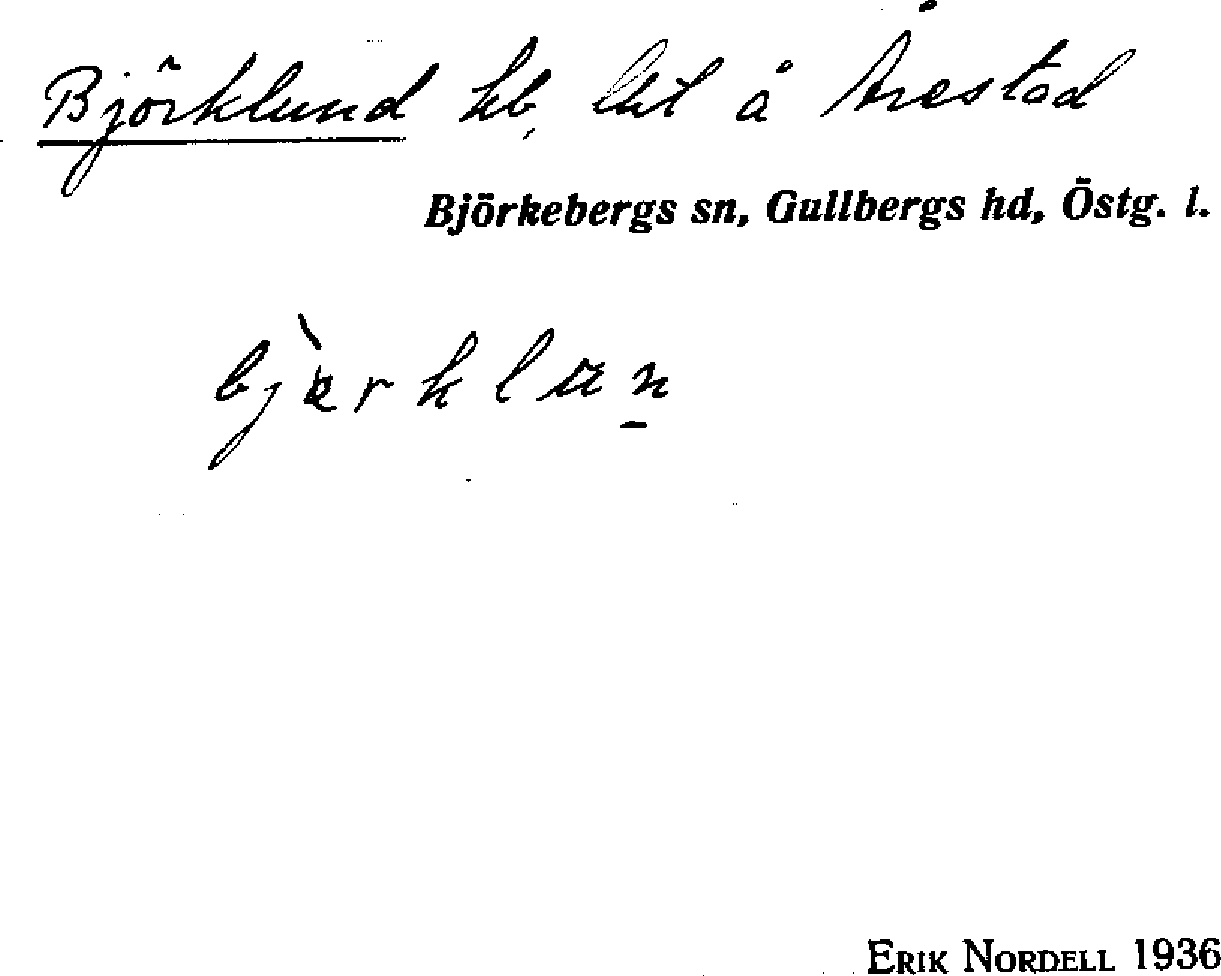 Björklund hb, lht å Årestad
Björkebergs sn, Gullbergs hd, Östg. l.
Erik Nordell 1936